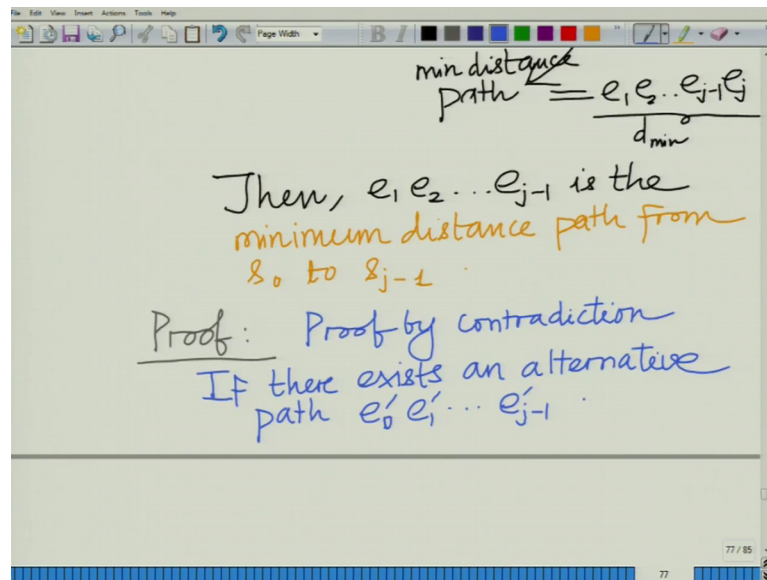 File Edit View Insert Actions Tools Help
Page Width
B I
min distance
path = e₁e₂..eⱼ₋₁eⱼ
d_min
Then, e₁ e₂ ... eⱼ₋₁ is the
minimum distance path from
s₀ to sⱼ₋₁.
Proof: Proof by contradiction
If there exists an alternative
path e₀′ e₁′ ... e′ⱼ₋₁.
77 / 85
77